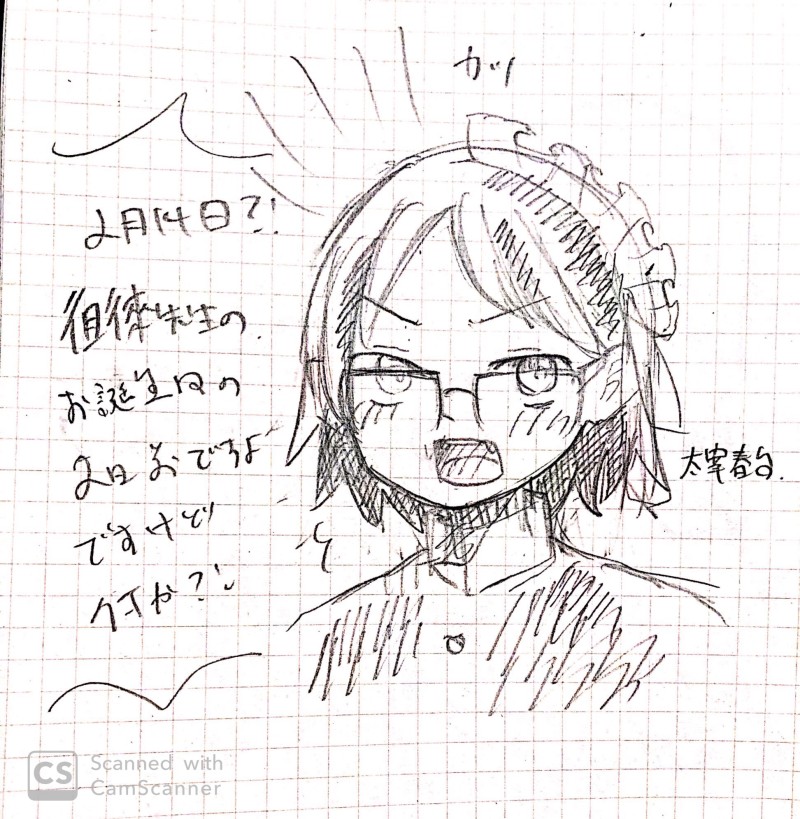 カッ
2月14日?!
徂徠先生の
お誕生日の
2日前ですよ
ですけど
何か?!
太宰春台
CS Scanned with
CamScanner